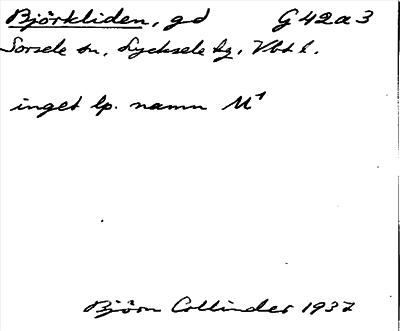 Björkliden, gd G 42 a 3
Sorsele sn, Lycksele lg, Vbt l.
inget lp. namn M¹
Björn Collinder 1937